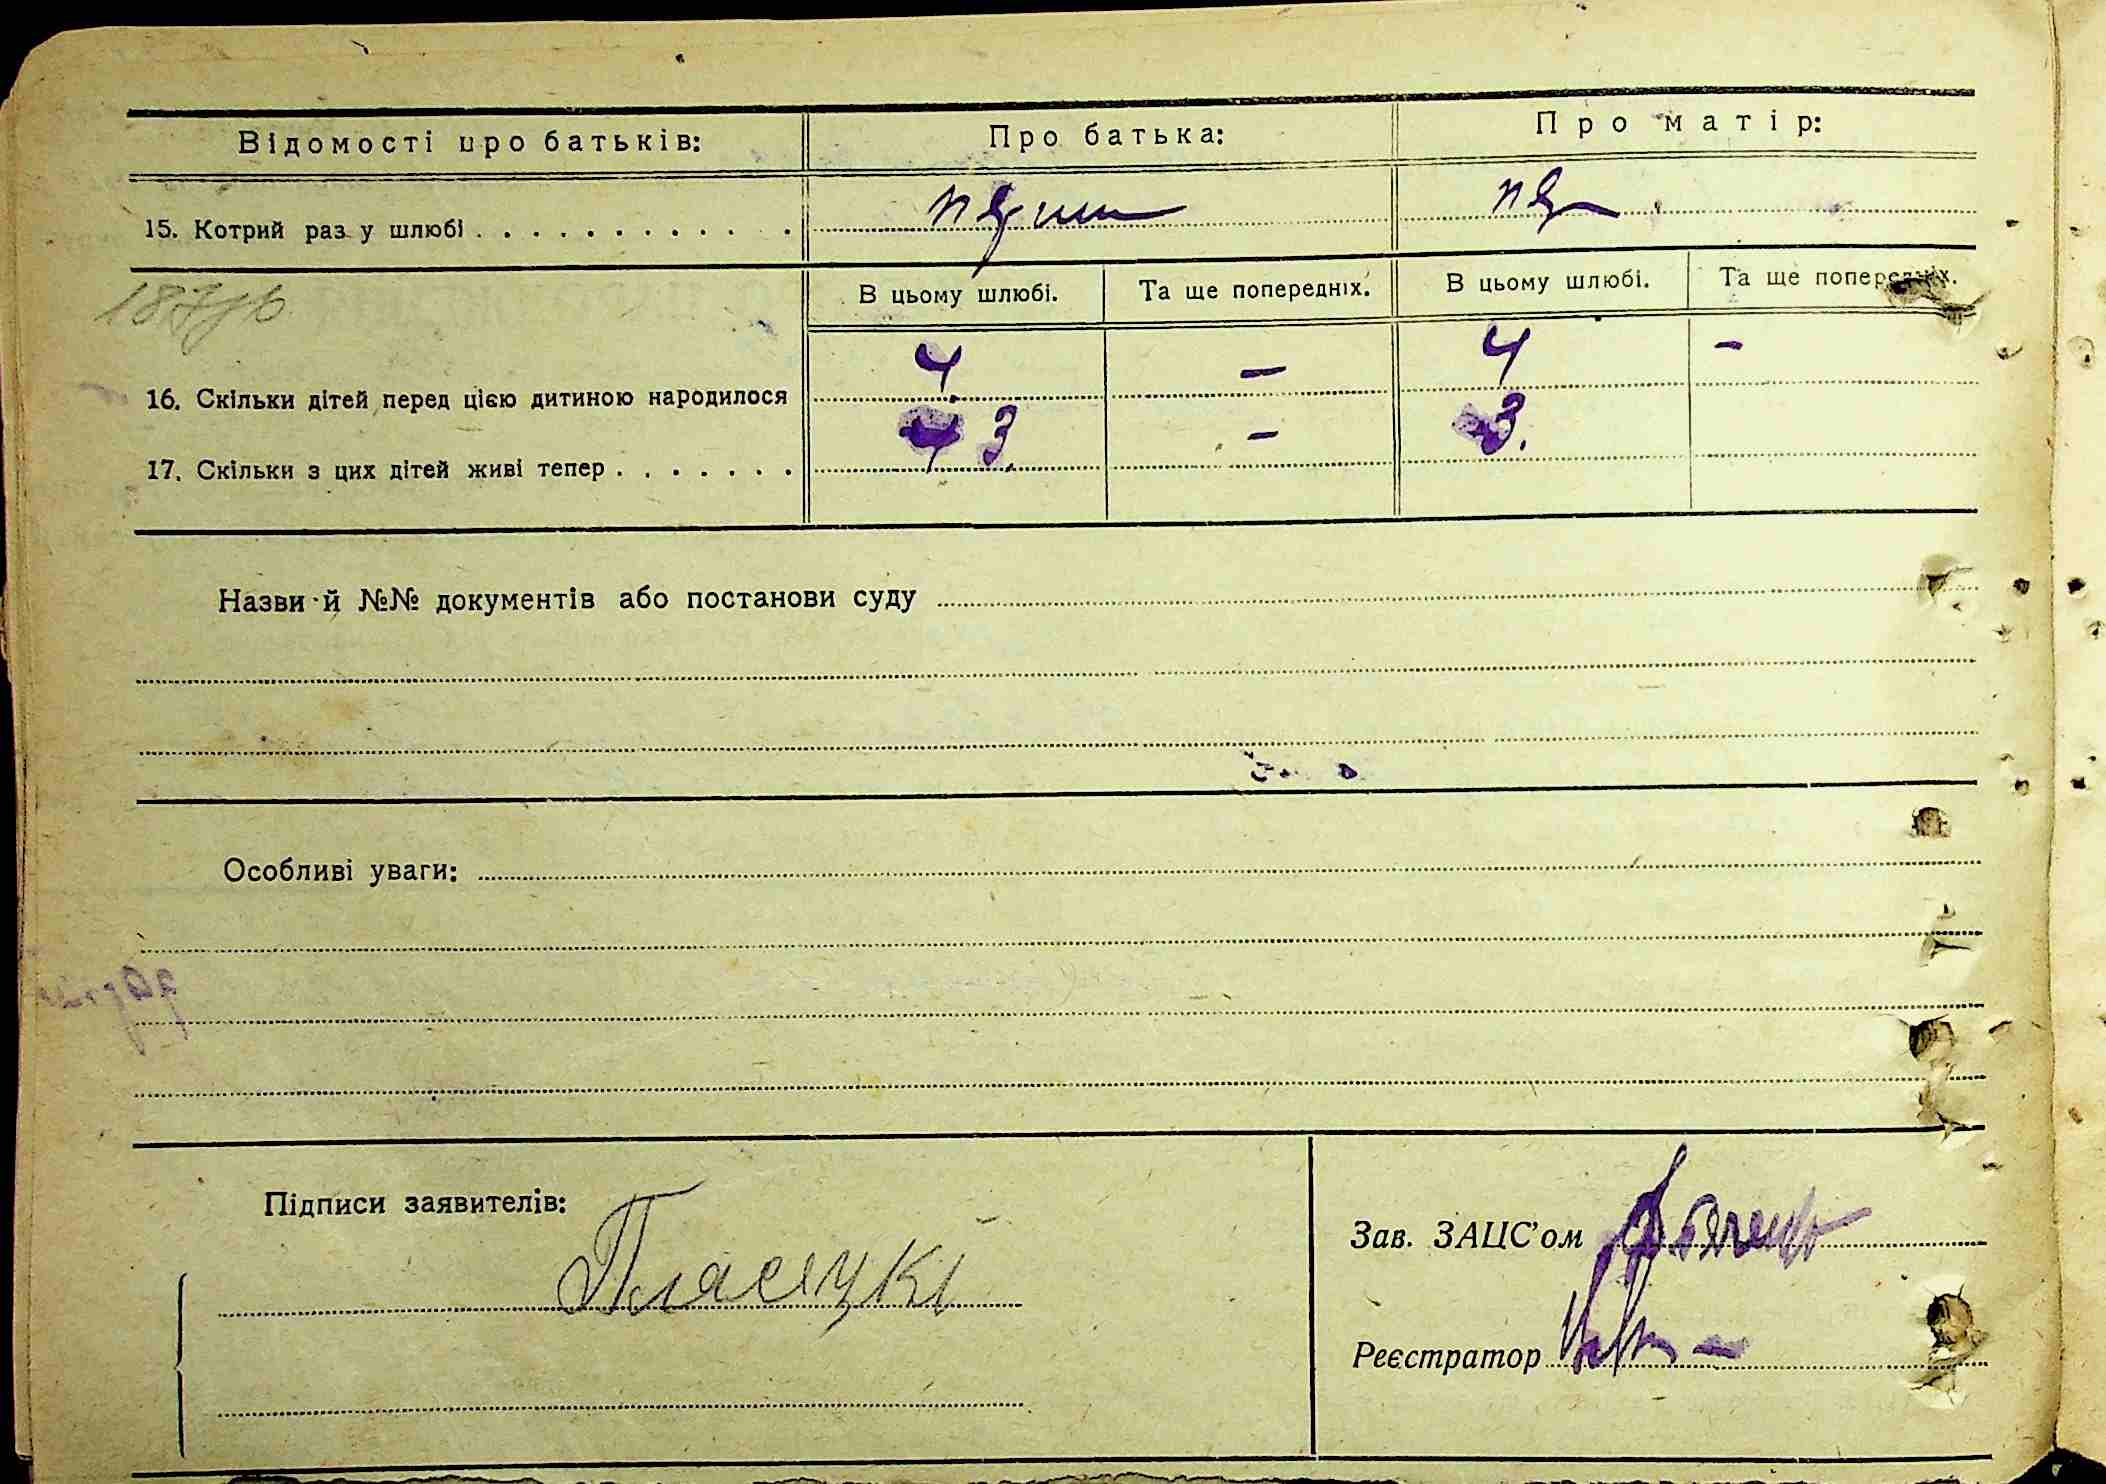 Відомості про батьків: Про батька: Про матір:
15. Котрий раз у шлюбі перш пер
В цьому шлюбі. Та ще попередніх. В цьому шлюбі. Та ще попередніх.
16. Скільки дітей перед цією дитиною народилося 4 – 4 –
17. Скільки з цих дітей живі тепер 4 3. – 3.
Назви й №№ документів або постанови суду
Особливі уваги:
Підписи заявителів:
Зав. ЗАЦС'ом
Пласяцкі
Реєстратор